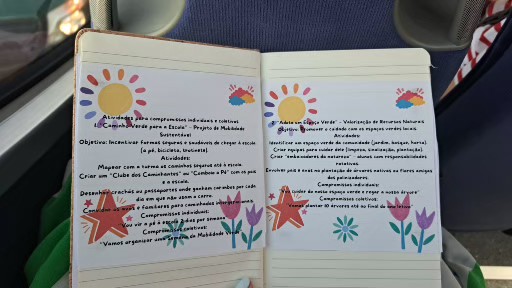 Atividades para compromissos individuais e coletivos
1. "Caminho Verde para a Escola" - Projeto de Mobilidade
Sustentável
Objetivo: Incentivar formas seguras e saudáveis de chegar à escola
(a pé, bicicleta, trotinete).
Atividades:
Mapear com a turma os caminhos seguros até à escola.
Criar um "Clube dos Caminhantes" ou "Comboio a Pé" com os pais
e a escola.
Desenhar crachás ou passaportes onde ganham carimbos por cada
dia em que não usam o carro.
Convidar os pais e familiares para caminhadas
Compromissos individuais:
"Vou vir a pé à escola 2 dias por semana
Compromissos coletivos:
"Vamos organizar uma semana da Mobilidade Verde
2. "Adota um Espaço Verde" - Valorização de Recursos Naturais
Objetivo: Promover o cuidado com os espaços verdes locais.
Atividades:
Identificar um espaço verde da comunidade (jardim, bosque, horta).
Criar equipas para cuidar dele (limpeza, sinalização, plantação).
Criar "embaixadores da natureza" - alunos com responsabilidades
rotativas.
Envolver pais e avós na plantação de árvores nativas ou flores amigas
dos polinizadores.
Compromissos individuais:
"Vou cuidar do nosso espaço verde e regar a nossa árvore"
Compromissos coletivos:
"Vamos plantar 10 árvores até ao final do ano letivo"